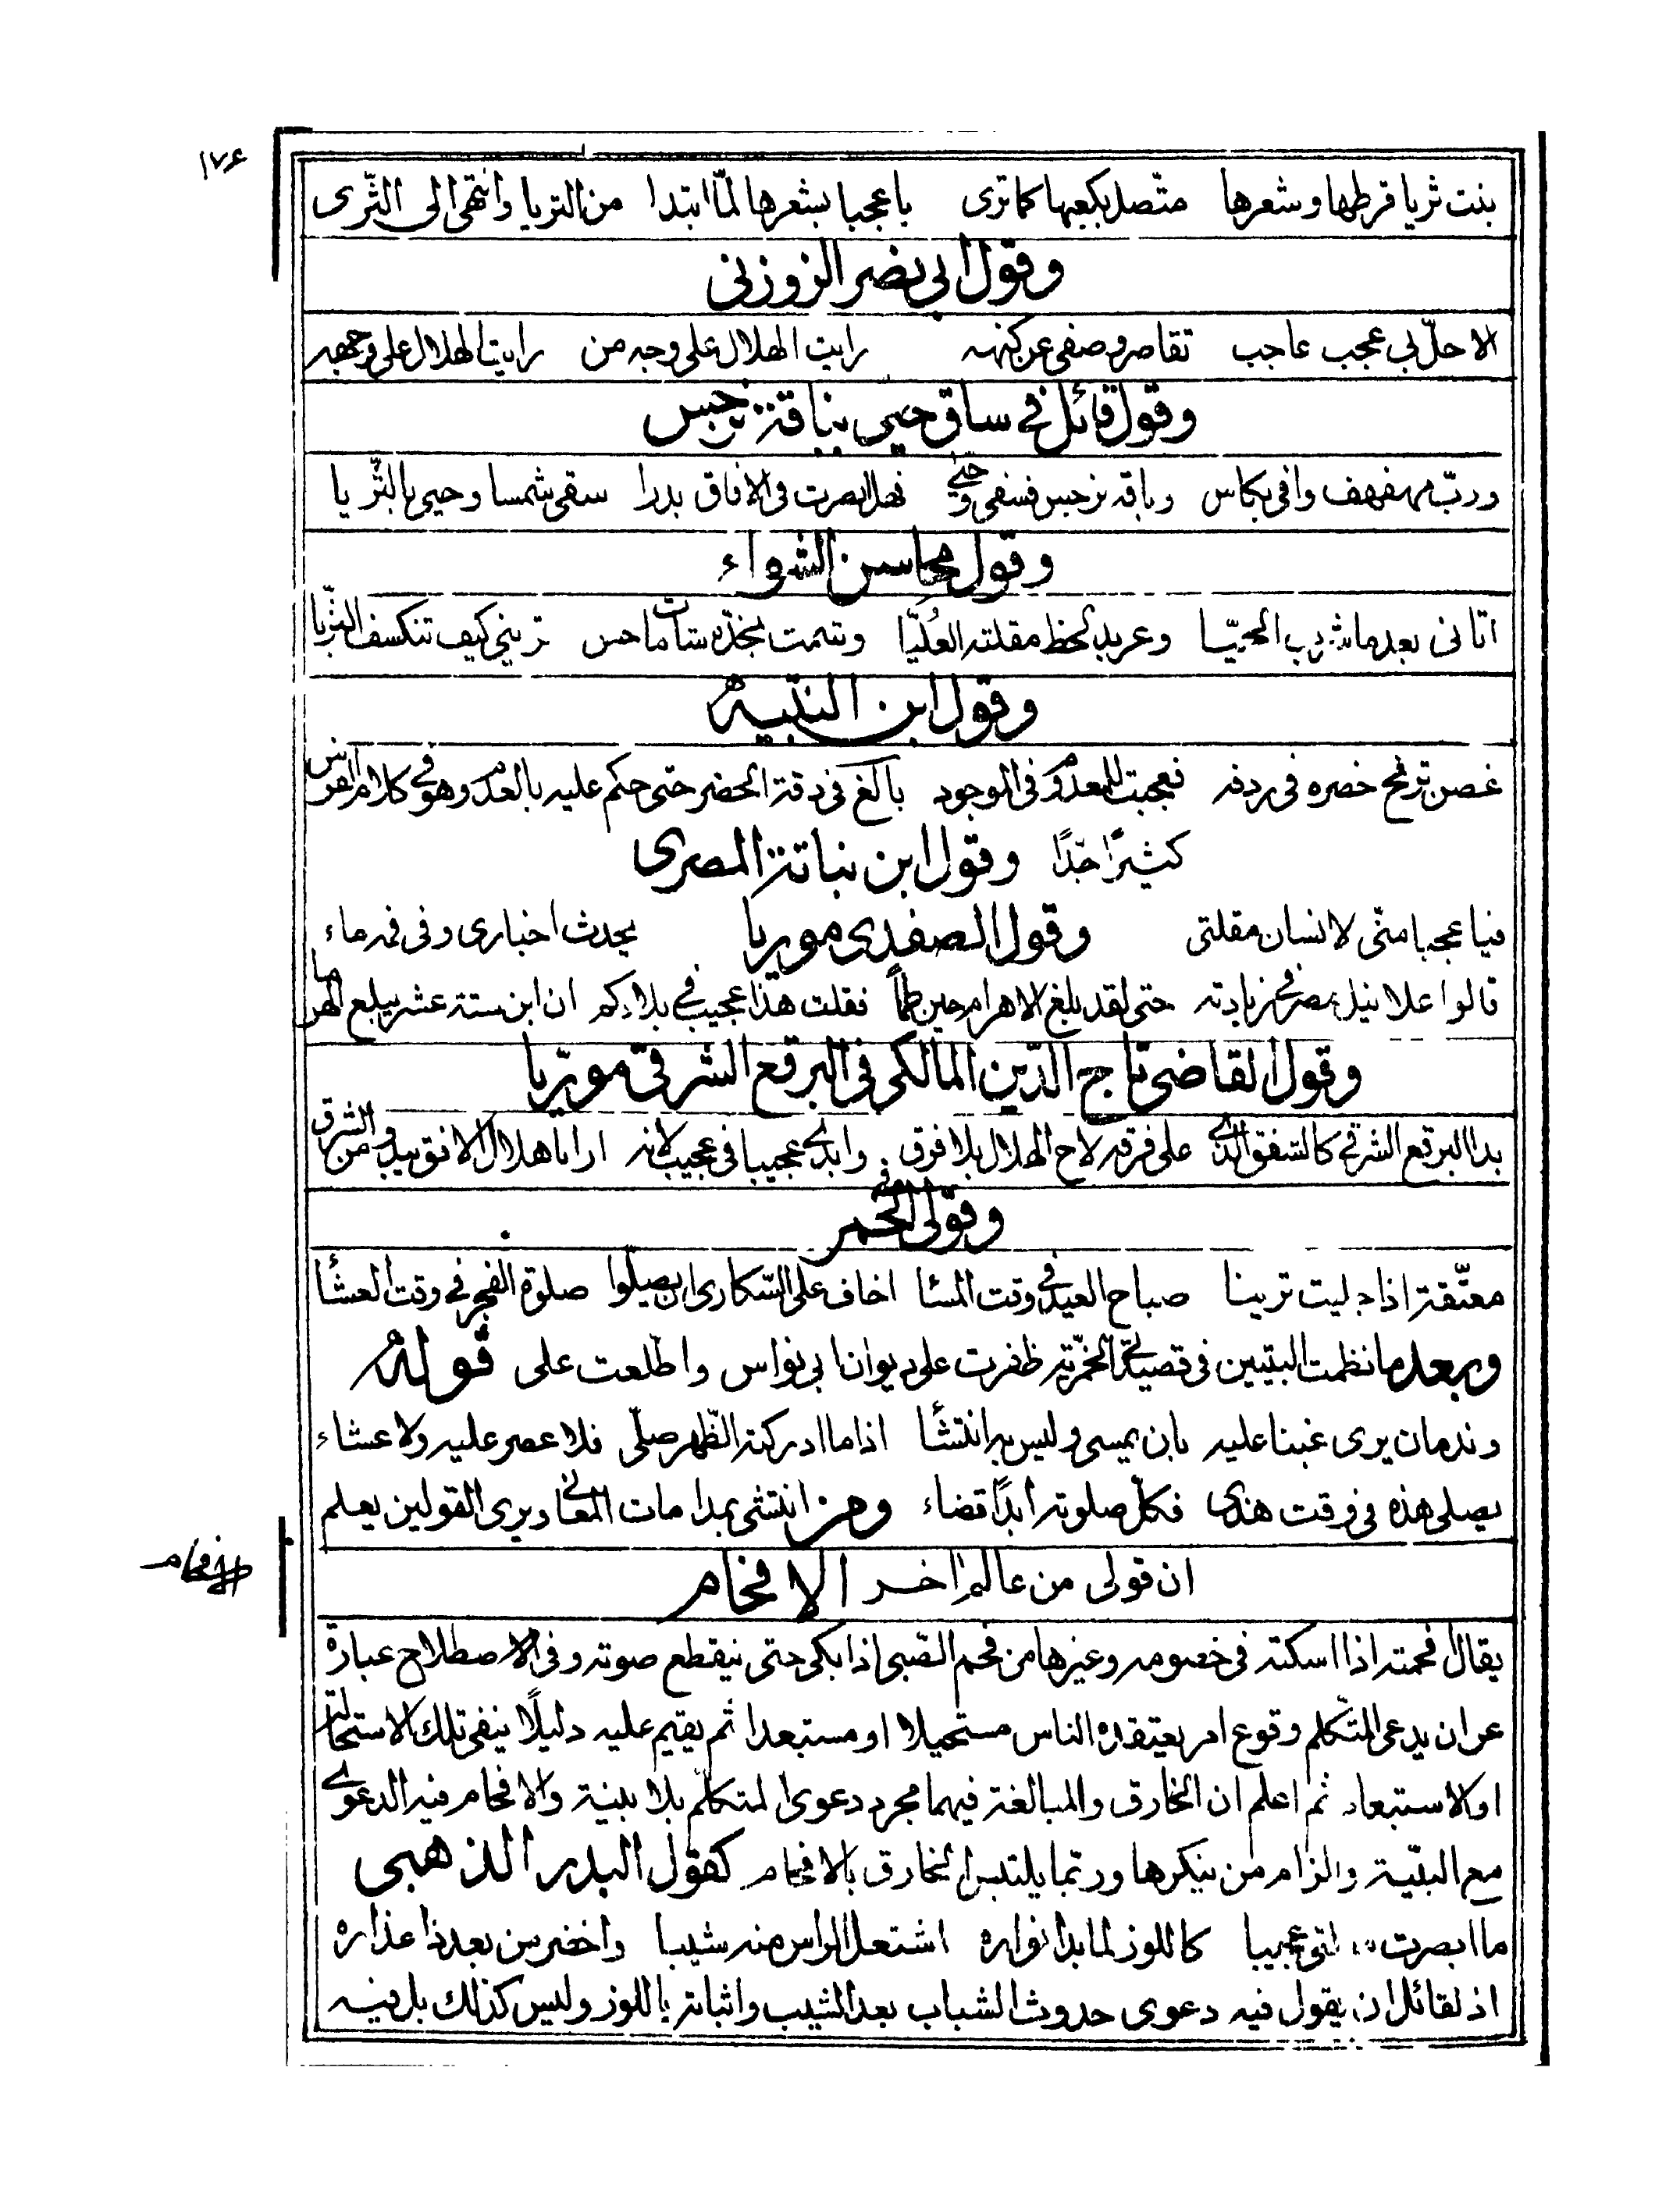 ١٧٤
بنت ثريا قرطها وشعرها متّصل بكعبها كما ترى يا عجبا بشعرها لمّا ابتدا من الثريا وانتهى الى الثّرى
وقول ابي نصر الزوزني
الا حلّ بي عجب عاجب تقاصر وصفي عن كنهه رايت الهلال على وجه من رايت الهلال على وجهه
وقول قائل في ساق حيي بباقة نرجس
وربّ مهفهف وافى بكاس وباقة نرجس فسقى وحيّى فهل ابصرت في الافاق بدرا سقى شمسا وحيى بالثّريا
وقول محاسن الشواء
اتانى بعدما شرب الحميّا وعربد لحظ مقلته العُليّا وشمت بخدّه شامات حس تريني كيف تنكسف الثّريا
وقول ابن النبيه
غصن ترنح خصره في ردفه فعجبت للمعدوم في الموجود بالغ في دقة الخصر حتى حكم عليه بالعدم وهو في كلام الفرس
كثيرًا جدًا وقول ابن نباتة المصرى
فيا عجبا منّى لانسان مقلتى وقول الصفدى موريا يحدث اخبارى وفى فمه ماء
قالوا علا نيل مصر في زيادته حتى لقد بلغ الاهرام حين طماً فقلت هذا عجيب في بلادكم ان ابن ستة عشر يبلغ الهرما
وقول القاضى تاج الدّين المالكى فى البرقع الشرقى مورّيا
بدا البرقع الشرقي كالشفق الذي على فرقه لاح الهلال بلا فرق وابدى عجيبا فى عجيب لانه ارانا هلال الافق يبدو من الشرق
وقولى فى الخمر
معتّقة اذا جليت ترينا صباح العيد في وقت المسا اخاف على السّكارى ان يصلّوا صلوة الفجر في وقت العشا
وبعد ما نظمت البيتين في قصيدتي الخمرّية ظفرت على ديوان ابي نواس واطّلعت على قوله
وندمان يرى غبنا عليه بان يمسى وليس به انتشا اذا ما ادركته الظّهر صلّى فلا عصر عليه ولا عشاء
يصلى هذه في وقت هذى فكلّ صلوته ابدًا قضاء ومن انتشى بمدامات المعاني ويرى القولين يعلم
ان قولى من عالم اخر الافحام
الافحام
يقال افحمته اذا اسكته في خصومه وغيرها من فحم الصّبى اذا بكى حتى ينقطع صوته وفى الاصطلاح عبارة
عن ان يدعى المتكلم وقوع امر يعتقده الناس مستحيلا او مستبعدا ثم يقيم عليه دليلًا ينفى تلك الاستحالة
او الاستبعاد ثم اعلم ان الخارق والمبالغة فيهما مجرد دعوى المتكلّم بلا بينة والافحام فيه الدعوى
مع البيّنة والزام من ينكرها وربّما يلتبس الخارق بالافحام كقول البدر الذهبى
ما ابصرت عجيبا كاللوز لما بدا نواره اشتعل الراس منه شيبا واخضر من بعد ذا عذاره
اذ لقائل ان يقول فيه دعوى حدوث الشباب بعد الشيب واثباته باللوز وليس كذلك بل فيه